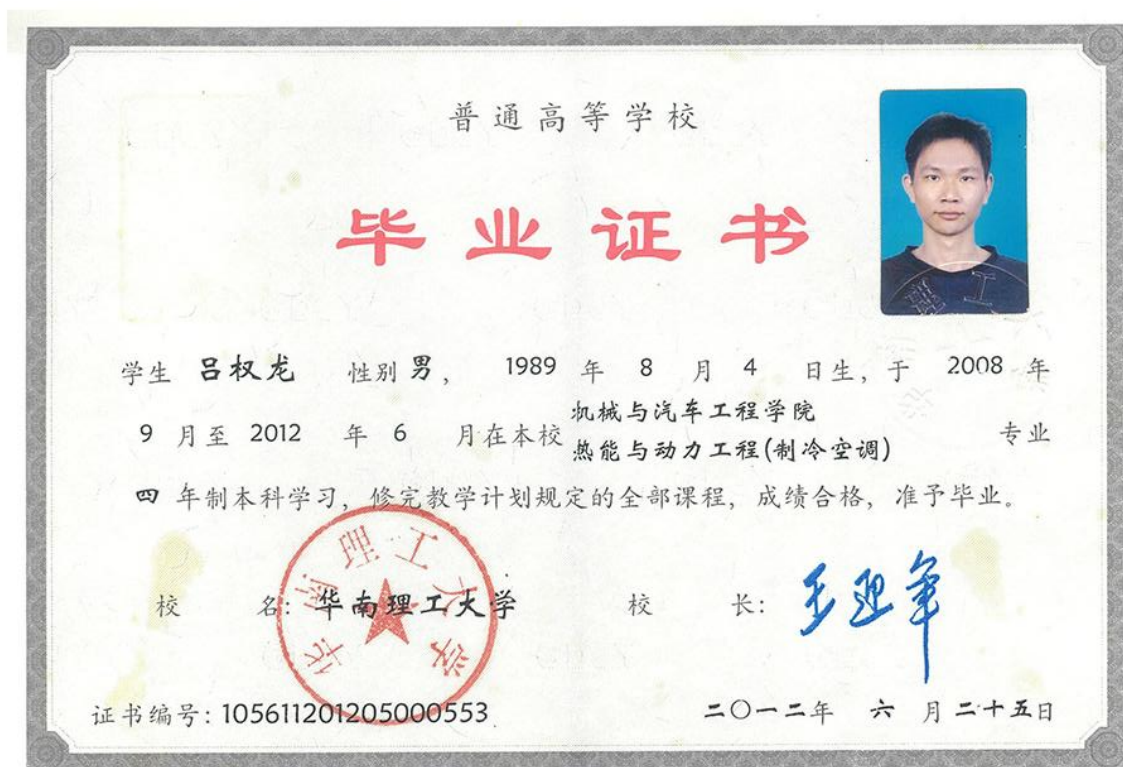 普通高等学校
毕业证书
学生 吕权龙 性别 男， 1989 年 8 月 4 日生，于 2008 年
9 月至 2012 年 6 月在本校 机械与汽车工程学院
热能与动力工程(制冷空调) 专业
四 年制本科学习，修完教学计划规定的全部课程，成绩合格，准予毕业。
校 名：华南理工大学 校 长：王迎军
华南理工大学
证书编号：105611201205000553 二〇一二年 六 月二十五日